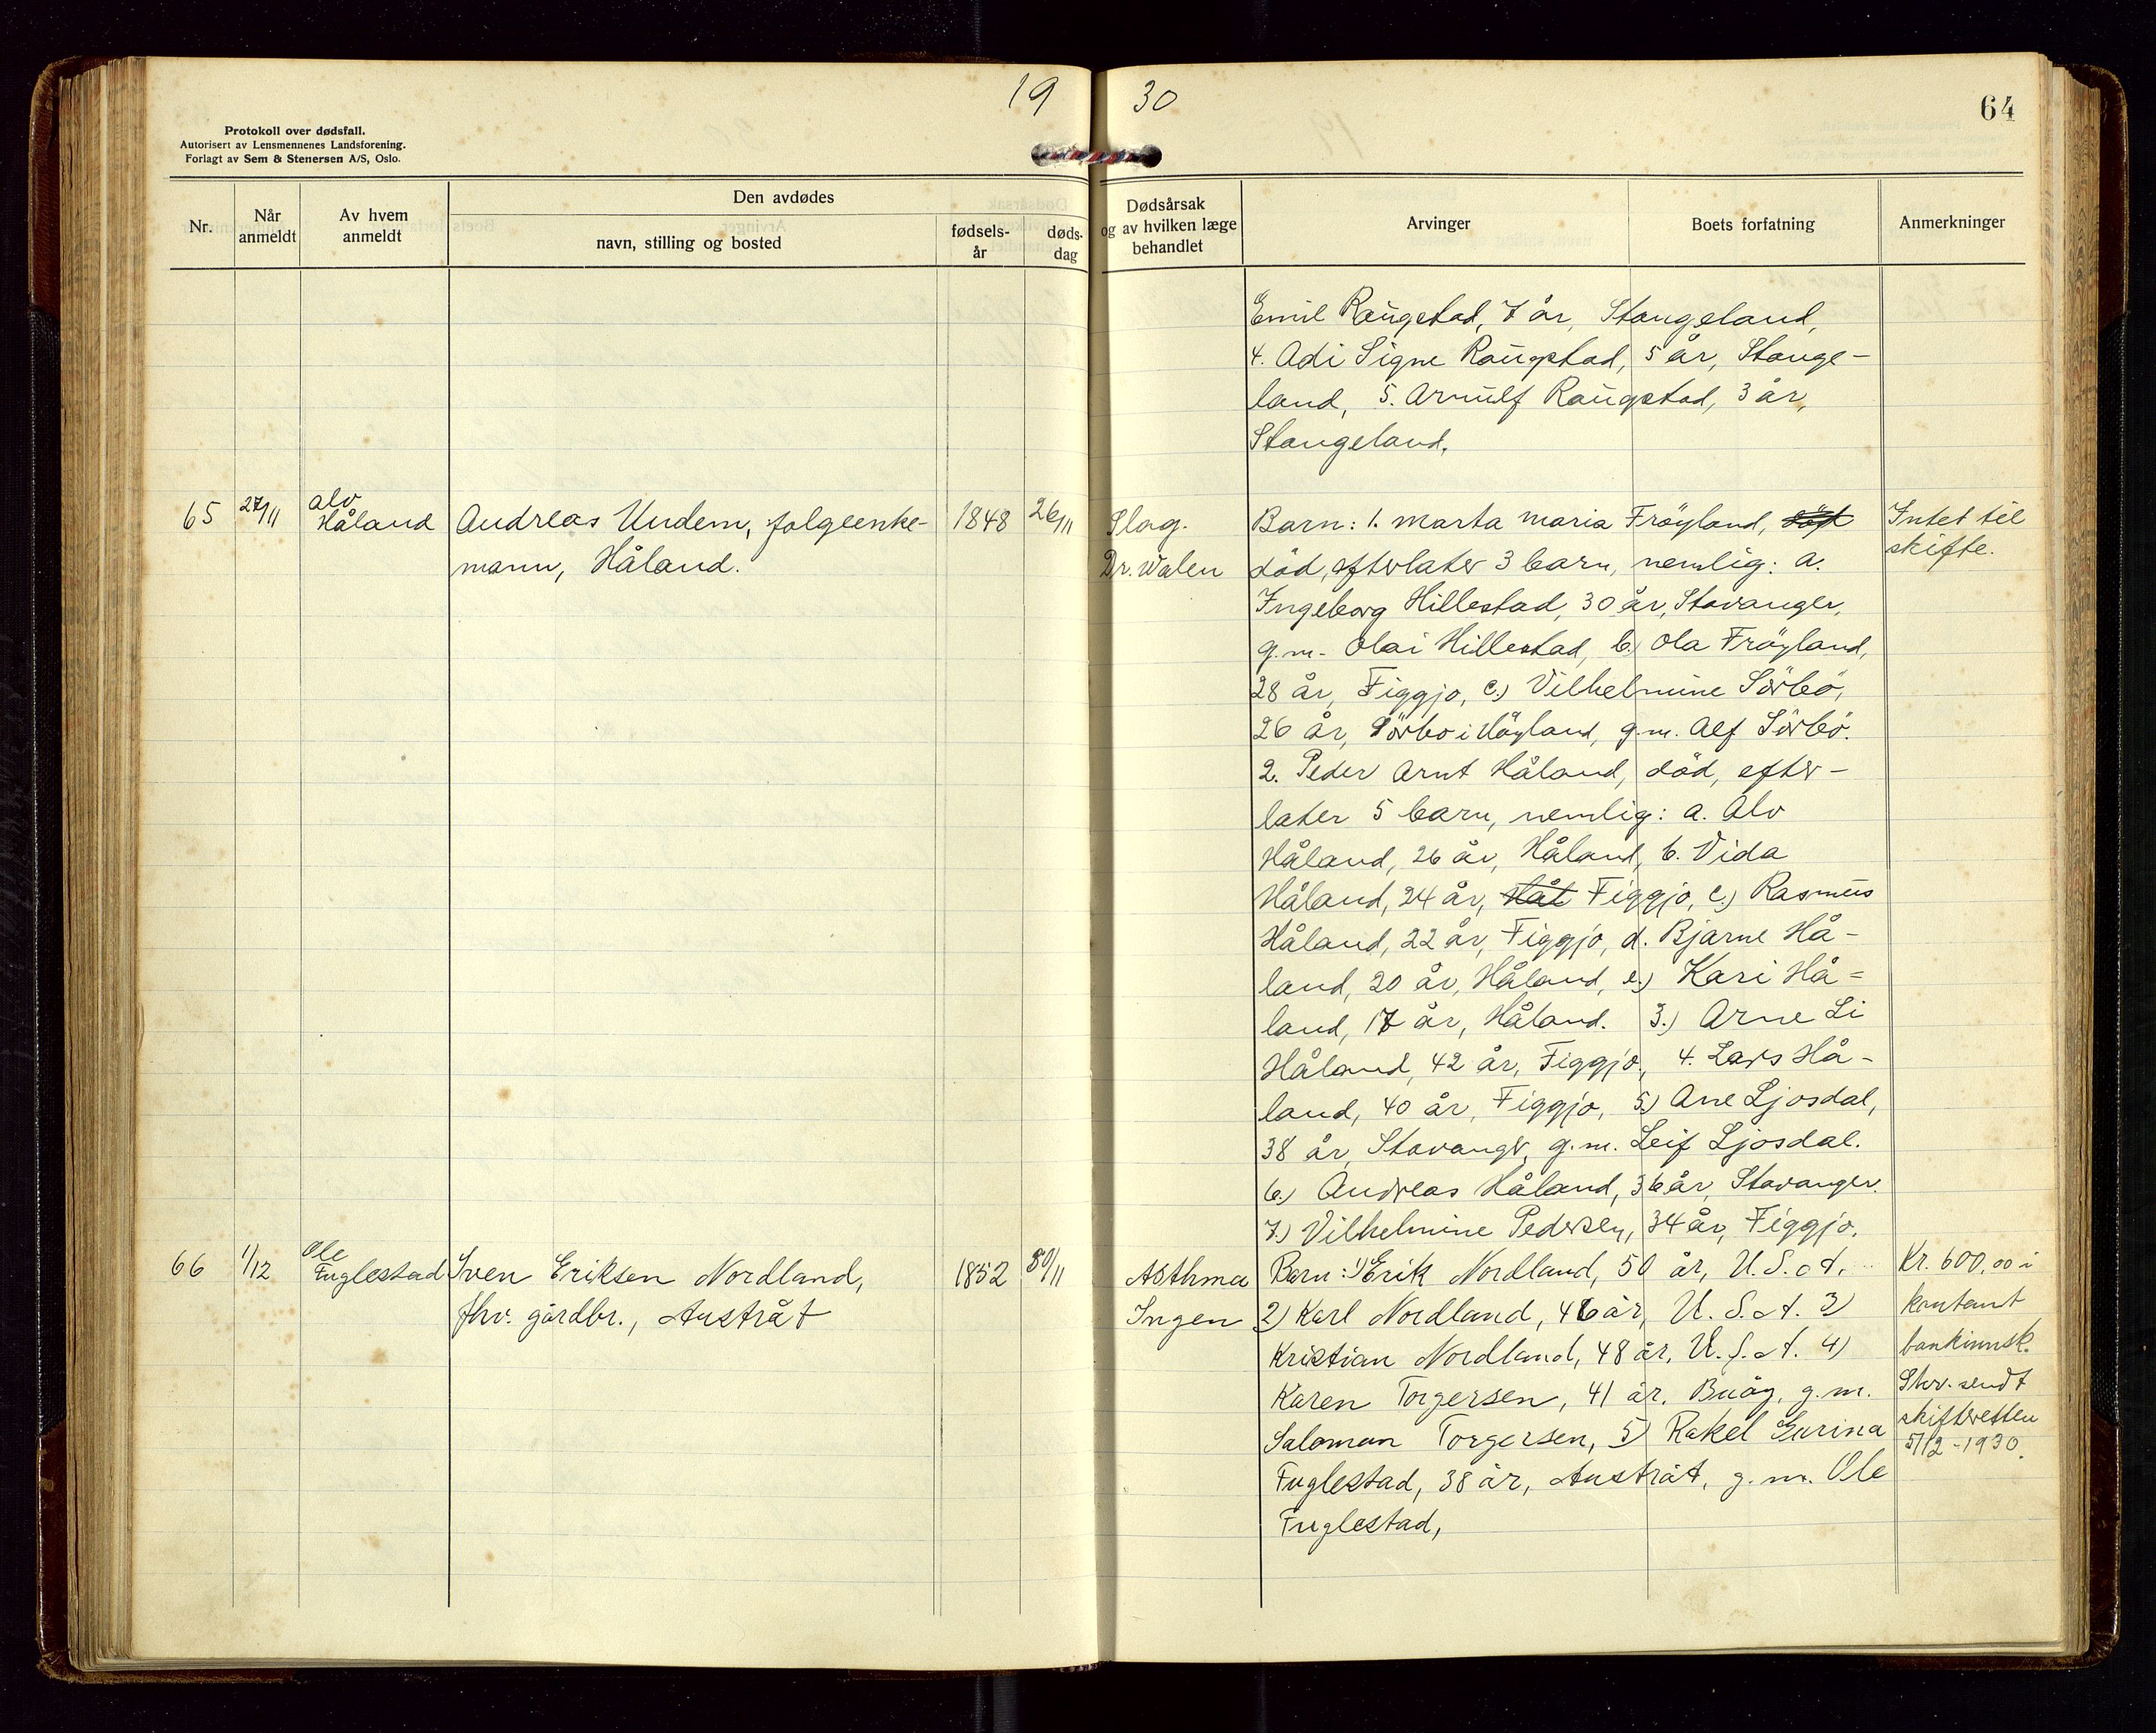 19 30
64
Protokoll over dødsfall.
Autorisert av Lensmennenes Landsforening.
Forlagt av Sem & Stenersen A/S, Oslo.
Nr.
Når anmeldt
Av hvem anmeldt
Den avdødes
navn, stilling og bosted
fødsels-år
døds-dag
Dødsårsak og av hvilken læge behandlet
Arvinger
Boets forfatning
Anmerkninger
Emil Raugstad, 7 år, Stangeland,
4. Adi Signe Raugstad, 5 år, Stange-
land, 5. Arnulf Raugstad, 3 år,
Stangeland.
65
27/11
Alv
Håland
Andreas Undem, folgeenke-
mann, Håland.
1848
26/11
Slag.
Dr. Walen
Barn: 1. Marta Maria Fröyland,
död, efterlater 3 barn, nemlig: a.
Ingeborg Hillestad, 30 år, Stavanger,
g.m. Olai Hillestad, b.) Ola Fröyland,
28 år, Figgjo, c.) Vilhelmine Sörbö,
26 år, Sörbo i Höyland, g.m. Alf Sörbö.
2. Peder Arnt Håland, död, efter-
later 5 barn, nemlig: a. Alv
Håland, 26 år, Håland, b. Vida
Håland, 24 år, Hål Figgjo, c.) Rasmus
Håland, 22 år, Figgjo, d. Bjarne Hå-
land, 20 år, Håland, e.) Kari Hå-
land, 17 år, Håland. 3.) Arne Li
Håland, 42 år, Figgjo, 4. Lars Hå-
land, 40 år, Figgjo, 5.) Ane Ljosdal,
38 år, Stavanger, g.m. Leif Ljosdal.
6.) Andreas Håland, 36 år, Stavanger.
7.) Vilhelmine Pedersen, 34 år, Figgjo.
Intet til
skifte.
66
1/12
Ole
Fuglestad
Sven Eriksen Nordland,
fhv. gårdbr., Austråt
1852
30/11
Asthma
Ingen
Barn: 1) Erik Nordland, 50 år, U.S.A.
2) Karl Nordland, 46 år, U.S.A. 3)
Kristian Nordland, 48 år, U.S.A. 4)
Karen Torgersen, 41 år, Buöy, g.m.
Saloman Torgersen, 5) Rakel Gurina
Fuglestad, 38 år, Austråt, g.m. Ole
Fuglestad,
Kr. 600,00 i
kontant
bankinnsk.
Skr. sendt
skifteretten
5/12-1930.